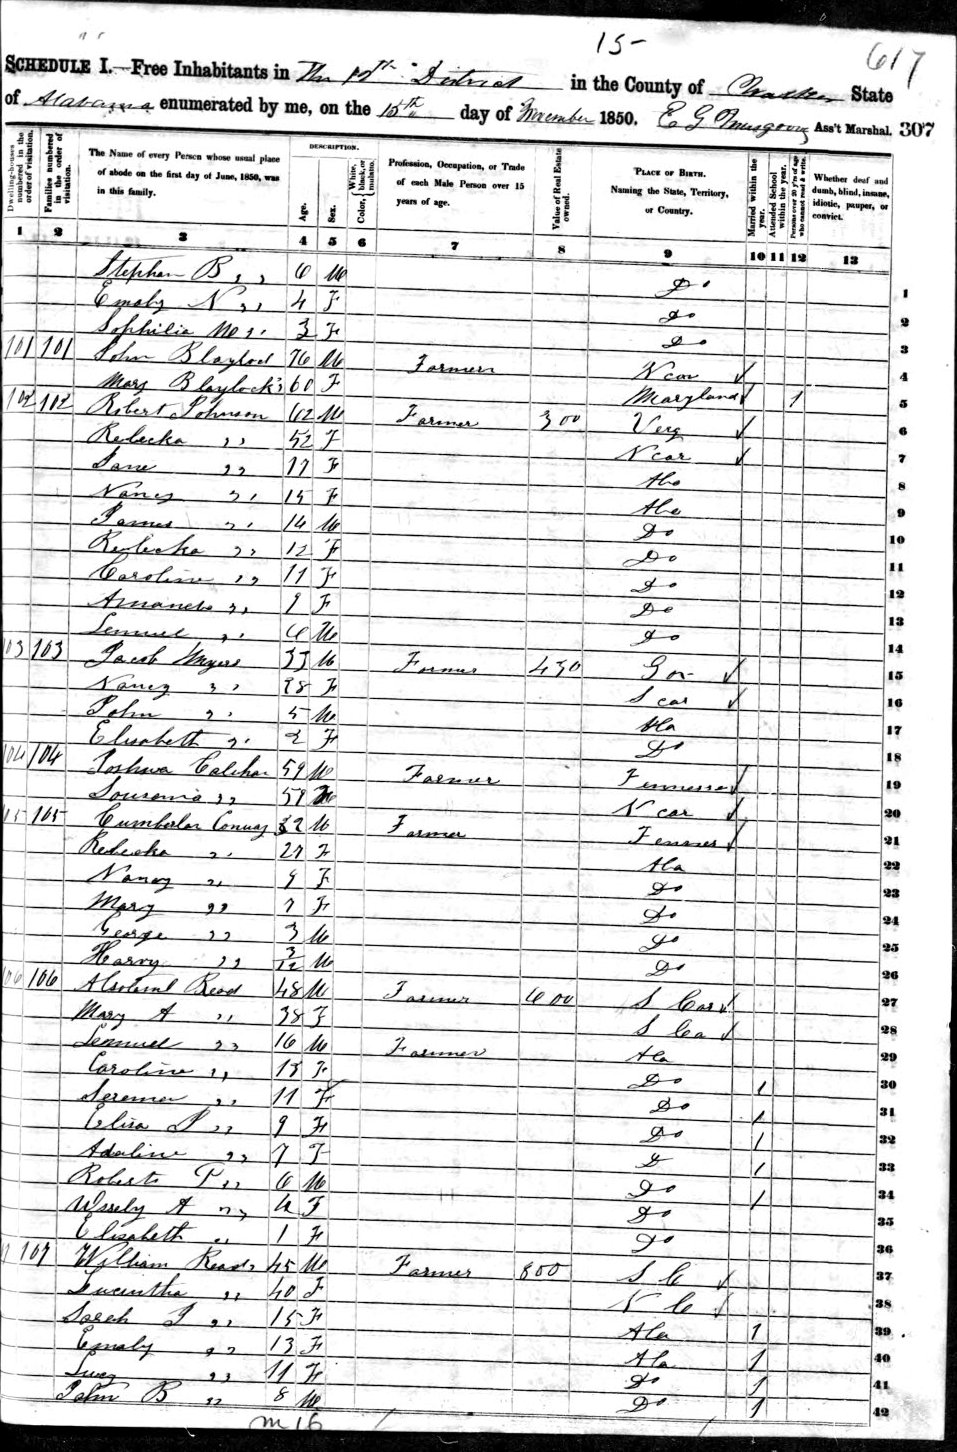 15-
617
SCHEDULE I.—Free Inhabitants in The 12th District in the County of State
of Alabama enumerated by me, on the 15th day of November 1850. E G Ass't Marshal. 307
Dwelling-houses numbered in the order of visitation.
Families numbered in the order of visitation.
The Name of every Person whose usual place of abode on the first day of June, 1850, was in this family.
DESCRIPTION.
Age.
Sex.
Color, { White, black, or mulatto.
Profession, Occupation, or Trade of each Male Person over 15 years of age.
Value of Real Estate owned.
PLACE OF BIRTH. Naming the State, Territory, or Country.
Married within the year.
Attended School within the year.
Persons over 20 y'rs of age who cannot read & write.
Whether deaf and dumb, blind, insane, idiotic, pauper, or convict.
1 2 3 4 5 6 7 8 9 10 11 12 13
Stephan B ,, 6 M Do 1
Emaby N ,, 4 F Do 2
Sophilia M ,, 3 F Do 3
101 101 John Blaylock 76 M Farmer N car ✓ 4
Mary Blaylock 60 F Maryland ✓ 1 5
102 102 Robert Johnson 62 M Farmer 300 Verg ✓ 6
Rebecka ,, 52 F N car ✓ 7
Jane ,, 17 F Ala 8
Nancy ,, 15 F Ala 9
James ,, 14 M Do 10
Rebecka ,, 12 F Do 11
Caroline ,, 11 F Do 12
Amanda ,, 9 F Do 13
Lemuel ,, 6 M Do 14
103 103 Jacob Myers 33 M Farmer 430 Geo ✓ 15
Nancy ,, 28 F S car ✓ 16
John ,, 5 M Ala 17
Elisabeth ,, 2 F Do 18
104 104 Joshua 59 M Farmer Tennessee ✓ 19
Lousania ,, 59 F N car ✓ 20
105 105 Cumberlan Conway 32 M Farmer Tennes ✓ 21
Rebecka ,, 27 F Ala 22
Nancy ,, 9 F Do 23
Mary ,, 7 F Do 24
George ,, 3 M Do 25
Harvy ,, 3/12 M Do 26
106 106 Read 48 M Farmer 600 S Car ✓ 27
Mary A ,, 38 F S Ca ✓ 28
Lemuel ,, 16 M Farmer Ala 29
Caroline ,, 13 F Do 1 30
Seremer ,, 11 F Do 1 31
Elisa J ,, 9 F Do 1 32
Adaline ,, 7 F D 1 33
Roberts T ,, 6 M Do 1 34
Wssely A ,, 4 F Do 35
Elisabeth ,, 1 F Do 36
107 William Read 45 M Farmer 800 S C ✓ 37
Lucintha ,, 40 F N C ✓ 38
Sarah J ,, 15 F Ala 1 39
Emaby ,, 13 F Ala 1 40
Lucy ,, 11 F Do 1 41
John B ,, 8 M Do 1 42
m 16